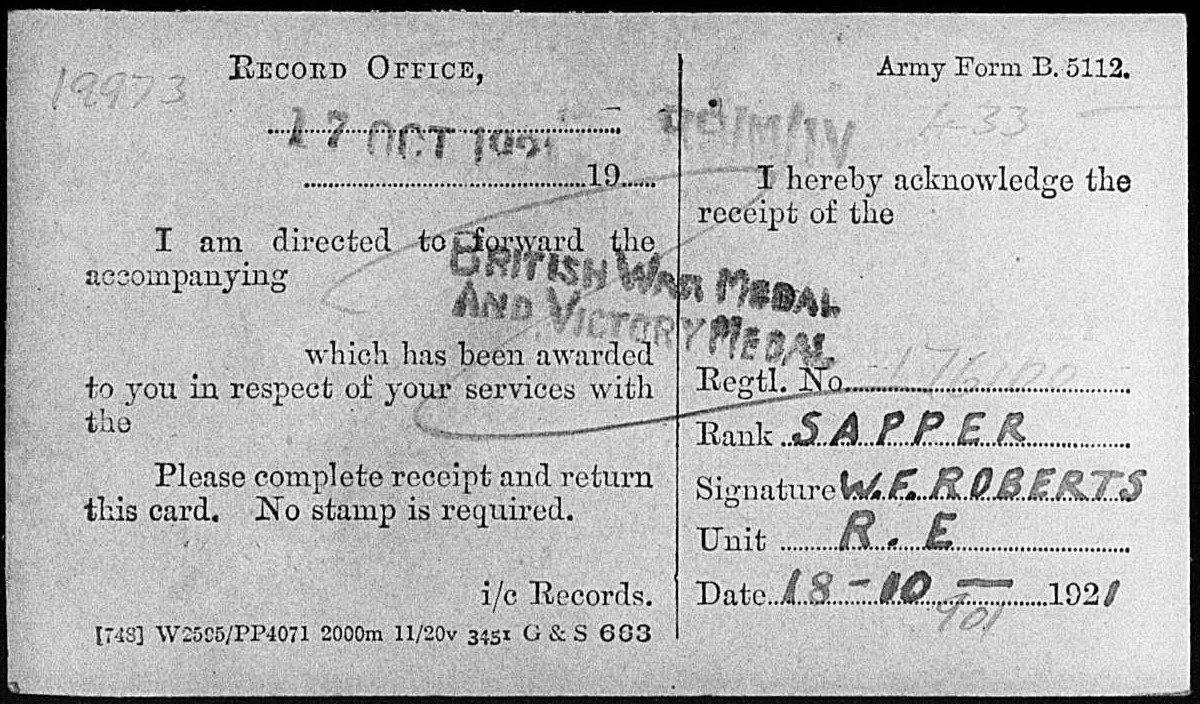 19973
RECORD OFFICE,
17 OCT 1921
19
I am directed to forward the
accompanying
BRITISH WAR MEDAL
AND VICTORY MEDAL
which has been awarded
to you in respect of your services with
the
Please complete receipt and return
this card. No stamp is required.
i/c Records.
[748] W2595/PP4071 2000m 11/20v 3451 G & S 663
Army Form B. 5112.
I hereby acknowledge the
receipt of the
Regtl. No. 176100
Rank SAPPER
Signature W.F. ROBERTS
Unit R. E
Date 18-10- 1921
901